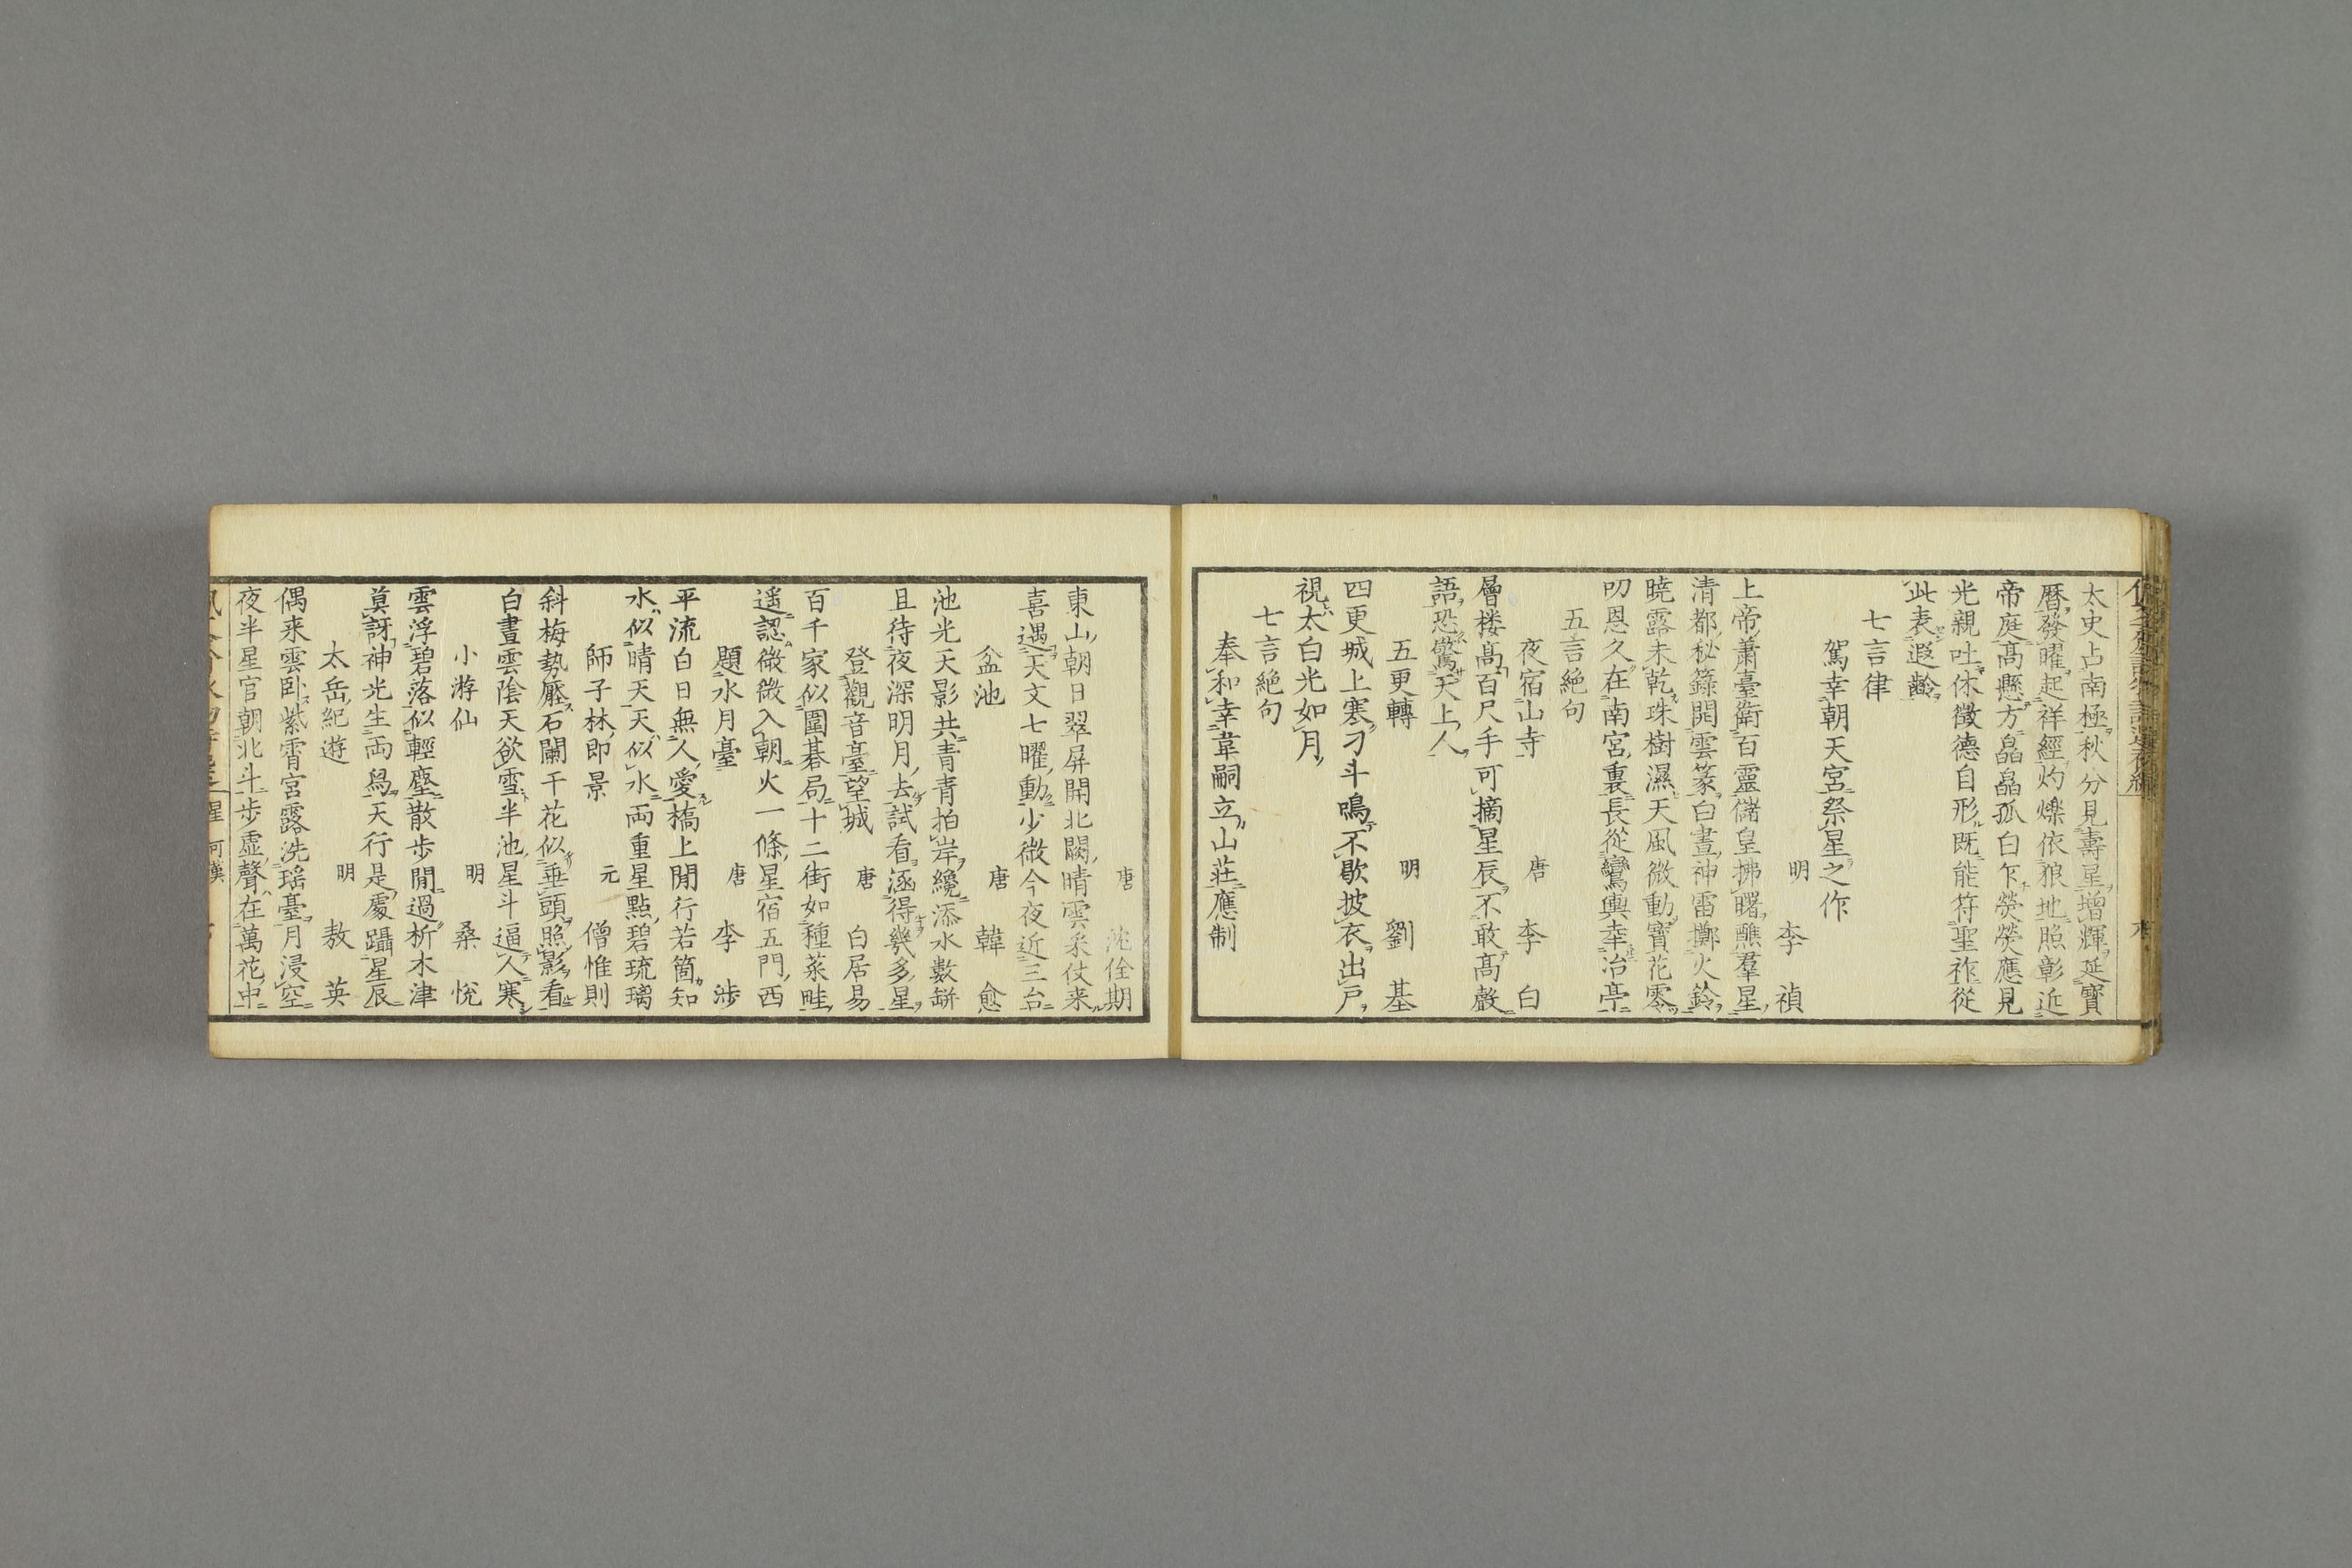 太史占南極秋分見壽星増輝延寳
暦發曜起祥經灼爍依狼地照彰近
帝庭髙懸方皛皛孤白乍熒熒應見
光親吐休徵德自形既能符聖祚從
此表遐齡
七言律
駕幸朝天宮祭星之作
明 李 禎
上帝蕭臺衛百靈儲皇拂曙醮羣星
清都秘籙開雲篆白晝神雷擲火鈴
曉露未乾珠樹濕天風微動寳花零
叨恩久在南宮裏長從鸞輿幸冶亭
五言絶句
夜宿山寺
唐 李 白
層楼髙百尺手可摘星辰不敢髙聲
語恐驚天上人
五更轉
明 劉 基
四更城上寒刁斗鳴不歇披衣出戸
視太白光如月
七言絶句
奉和幸韋嗣立山莊應制
唐 沈佺期
東山朝日翠屏開北闕晴雲采仗来
喜遇天文七曜動少微今夜近三台
盆池
唐 韓 愈
池光天影共青青拍岸纔添水數缾
且待夜深明月去試看涵得幾多星
登觀音臺望城
唐 白居易
百千家似圍碁局十二街如種菜畦
遥認微微入朝火一條星宿五門西
題水月臺
唐 李 渉
平流白日無人愛橋上閒行若箇知
水似晴天天似水両重星點碧琉璃
師子林即景
元 僧惟則
斜梅勢壓石闌干花似垂頭照影看
白晝雲陰天欲雪半池星斗逼人寒
小游仙
明 桑 悅
雲浮碧落似輕塵散歩閒過析木津
莫訝神光生両舃天行是處躡星辰
太岳紀遊
明 敖 英
偶来雲卧紫霄宮露洗瑶臺月浸空
夜半星官朝北斗歩虚聲在萬花中